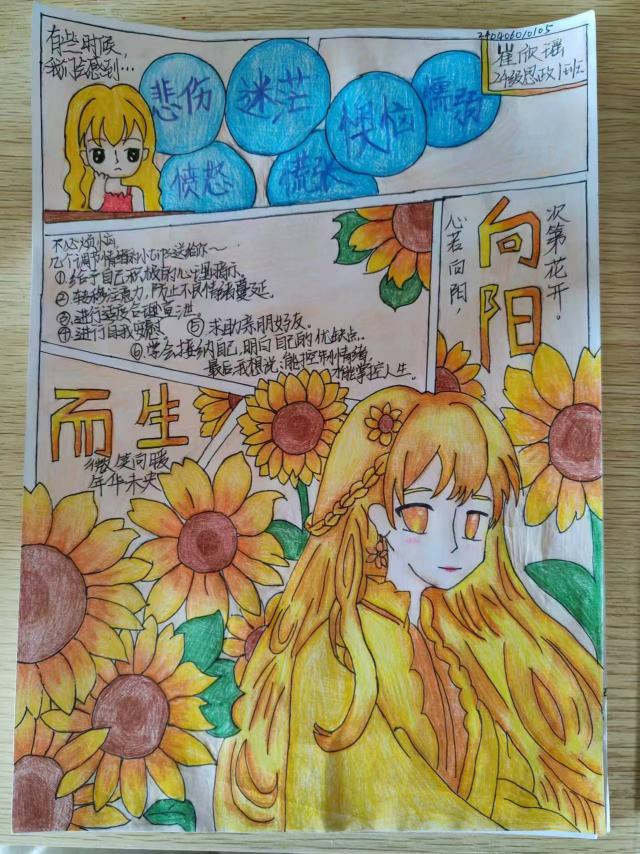 240406010105
崔欣瑶
24级思政1班
有些时候，
我们会感到…
悲伤
迷茫
懊恼
懦弱
愤怒
慌张
不必烦恼，
几个调节情绪的小Tips送给你～
①给予自己积极的心理暗示。
②转移注意力，防止不良情绪蔓延。
③进行适度合理宣泄
④进行自我安慰
⑤求助亲朋好友。
⑥学会接纳自己，明白自己的优缺点。
最后我想说：能控制情绪，
才能掌控人生。
向阳
心若向阳，
次第花开。
而生
微笑向暖
年华未央